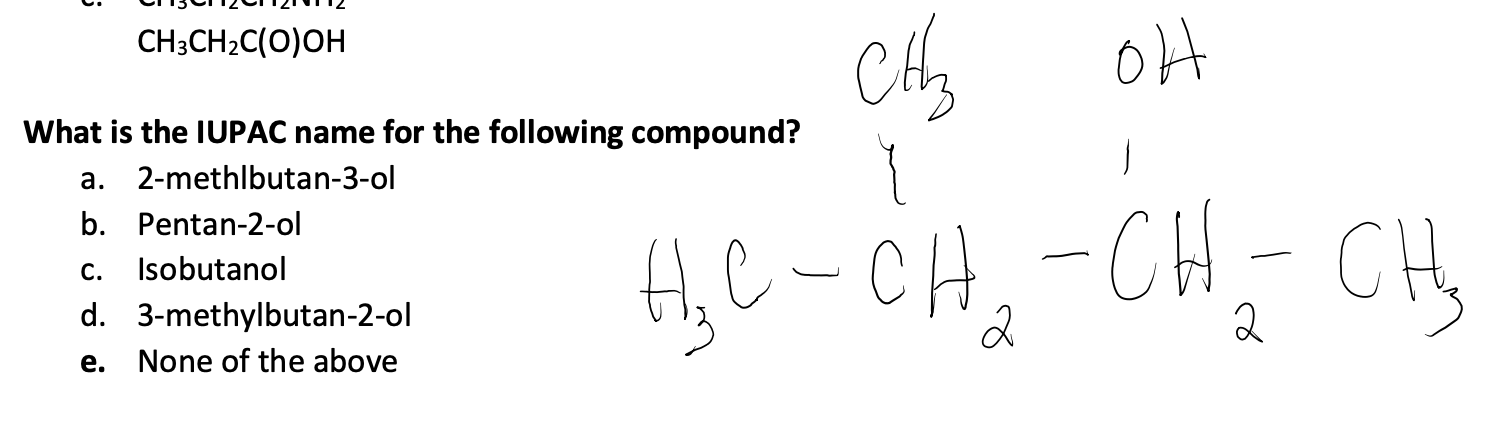 CH₃CH₂C(O)OH
What is the IUPAC name for the following compound?
a. 2-methlbutan-3-ol
b. Pentan-2-ol
c. Isobutanol
d. 3-methylbutan-2-ol
e. None of the above
CH₃ OH
H₃C - CH₂ - CH₂ - CH₃